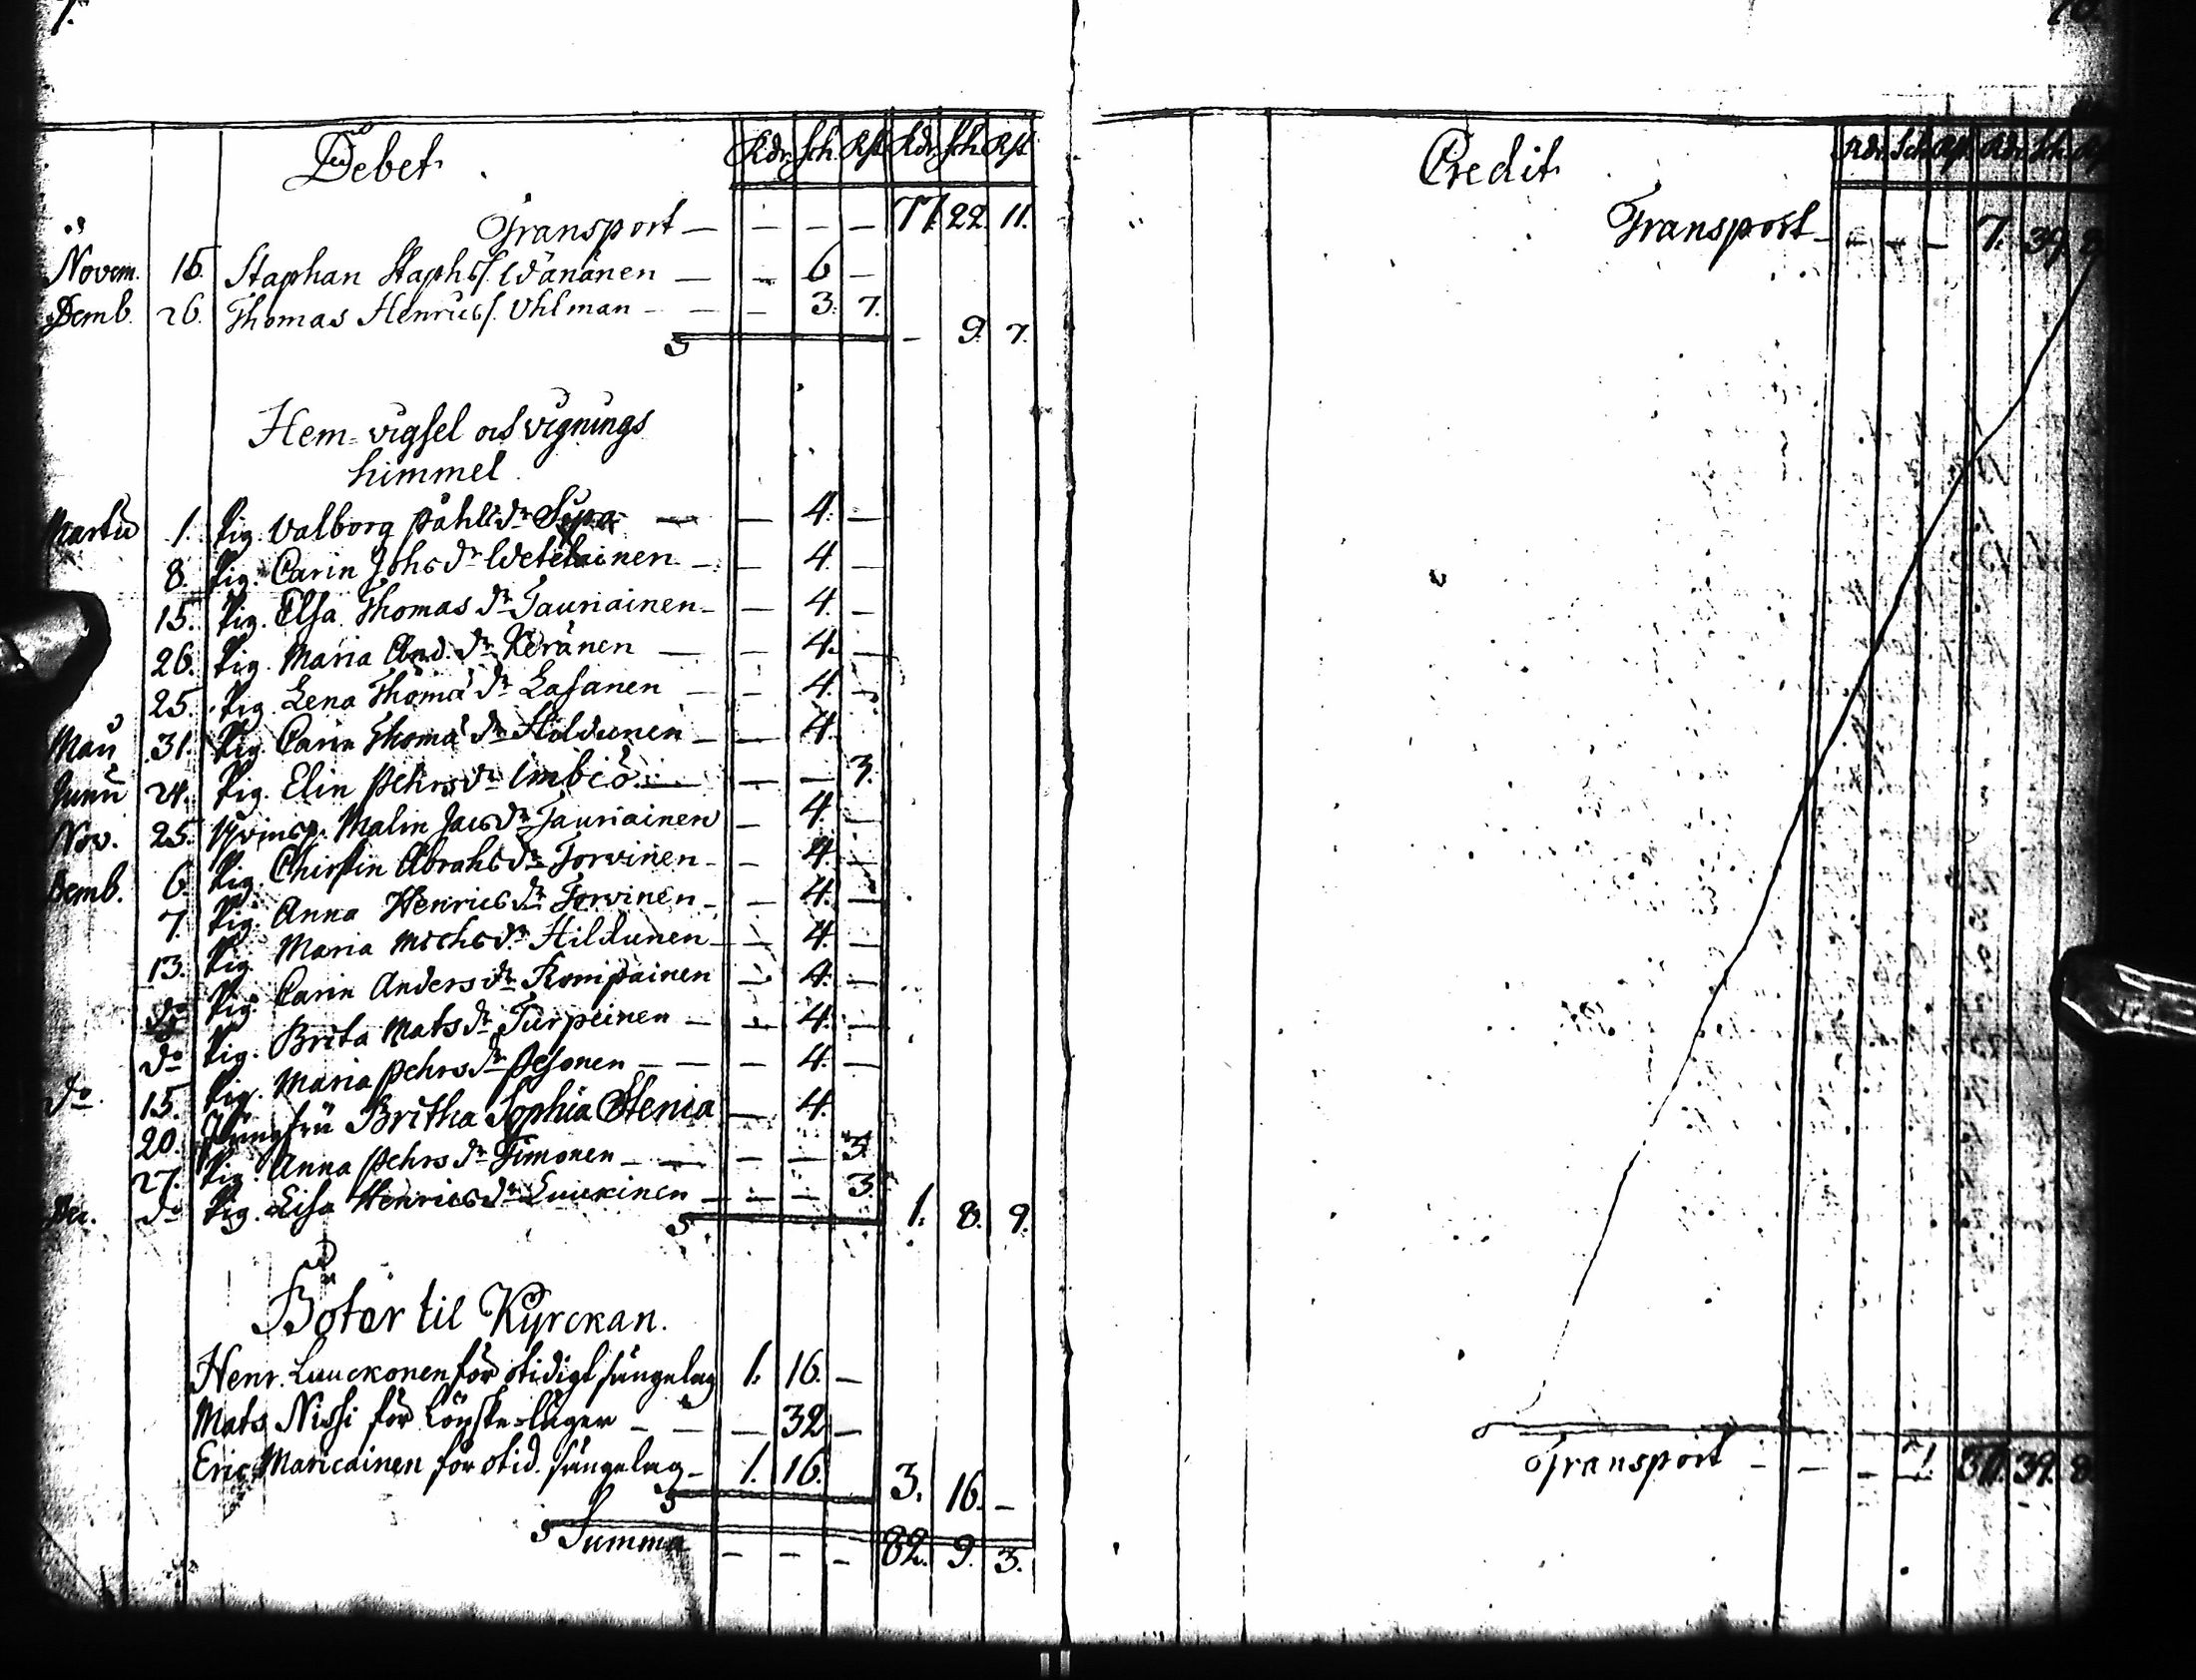 Debet Rdr Sch. Rst. Rdr. Sch. Rst
Transport — — — — 77. 22. 11.
Novem. 15. Staphan Staphs. Wänänen — — 6 —
Decmb. 26. Thomas Henrics. Uhlman — — 3. 7.
— 9. 7.
Hem-vigsel och vignings
himmel
Martii 1. Pig. Valborg Påhlsdr — — 4. —
8. Pig. Carin Johsdr Wetelainen — — 4. —
15. Pig. Elsa Thomasdr Tauriainen — — 4. —
26. Pig. Maria And.dr Keränen — — 4. —
25. Pig. Lena Thomædr Lasanen — — 4. —
Maii 31. Pig. Carin Thomædr — — 4.
Junii 24. Pig. Elin Pehrsdr Imbiö — — — 3.
Nov. 25. Malin Jacsdr Tauriainen — 4. —
Decmb. 6. Pig. Chirstin Abrahsdr Torvinen — — 4. —
7. Pig. Anna Henricsdr Torvinen — — 4. —
13. Pig. Maria Michsdr Hildunen — — 4. —
do Pig. Carin Andersdr Kompainen — 4. —
do Pig. Brita Matsdr Turpeinen — — 4. —
do 15. Pig. Maria Pehrsdr Pesonen — — — 4. —
20. Jungfru Britha Sophia Stenia — 4.
27. Pig. Anna Pehrsdr Timonen — — — — 3.
Dec. do Pig. Lisa Henricsdr Luukinen — — — 3.
1. 8. 9.
Böter til Kyrckan.
Henr. Luuckonen för otidigt sängelag 1. 16. —
Mats Nissi för Löpske-läger — — — 32 —
Eric Maricainen för otid. sängelag — 1. 16.
3. 16. —
Summa — — — 82. 9. 3.
Credit Rdr. Sch. Rst. Rdr. Sch.
Transport — — — — 7. 39.
Transport — — — 39. 8